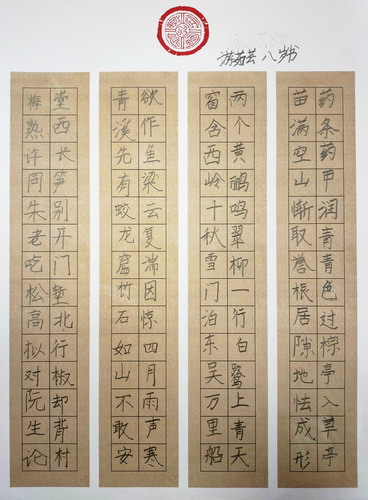 堂西长笋别开门堑北行椒却背村
梅熟许同朱老吃松高拟对阮生论
欲作鱼梁云复湍因惊四月雨声寒
青溪先有蛟龙窟竹石如山不敢安
两个黄鹂鸣翠柳一行白鹭上青天
窗含西岭千秋雪门泊东吴万里船
药条药甲润青青色过棕亭入草亭
苗满空山惭取誉根居隙地怯成形
八岁书